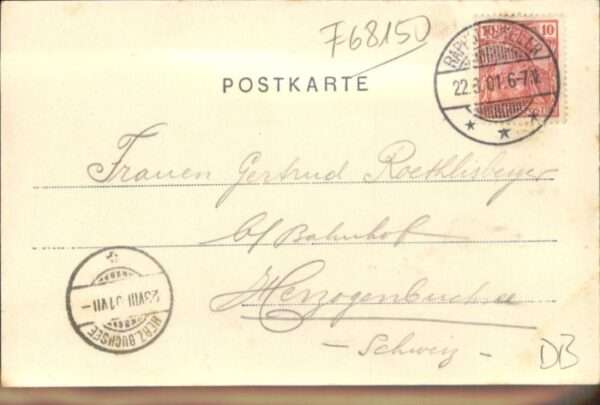 F68150
10
RAPPOLTSWEILER
22.8.01.6-7N.
* * *
POSTKARTE
Frauen Gertrud Roethlisberger
b/ Bahnhof
Herzogenbuchsee
- Schweiz -
23 VIII 01 VII -
HERZ. BUCHSEE
DB